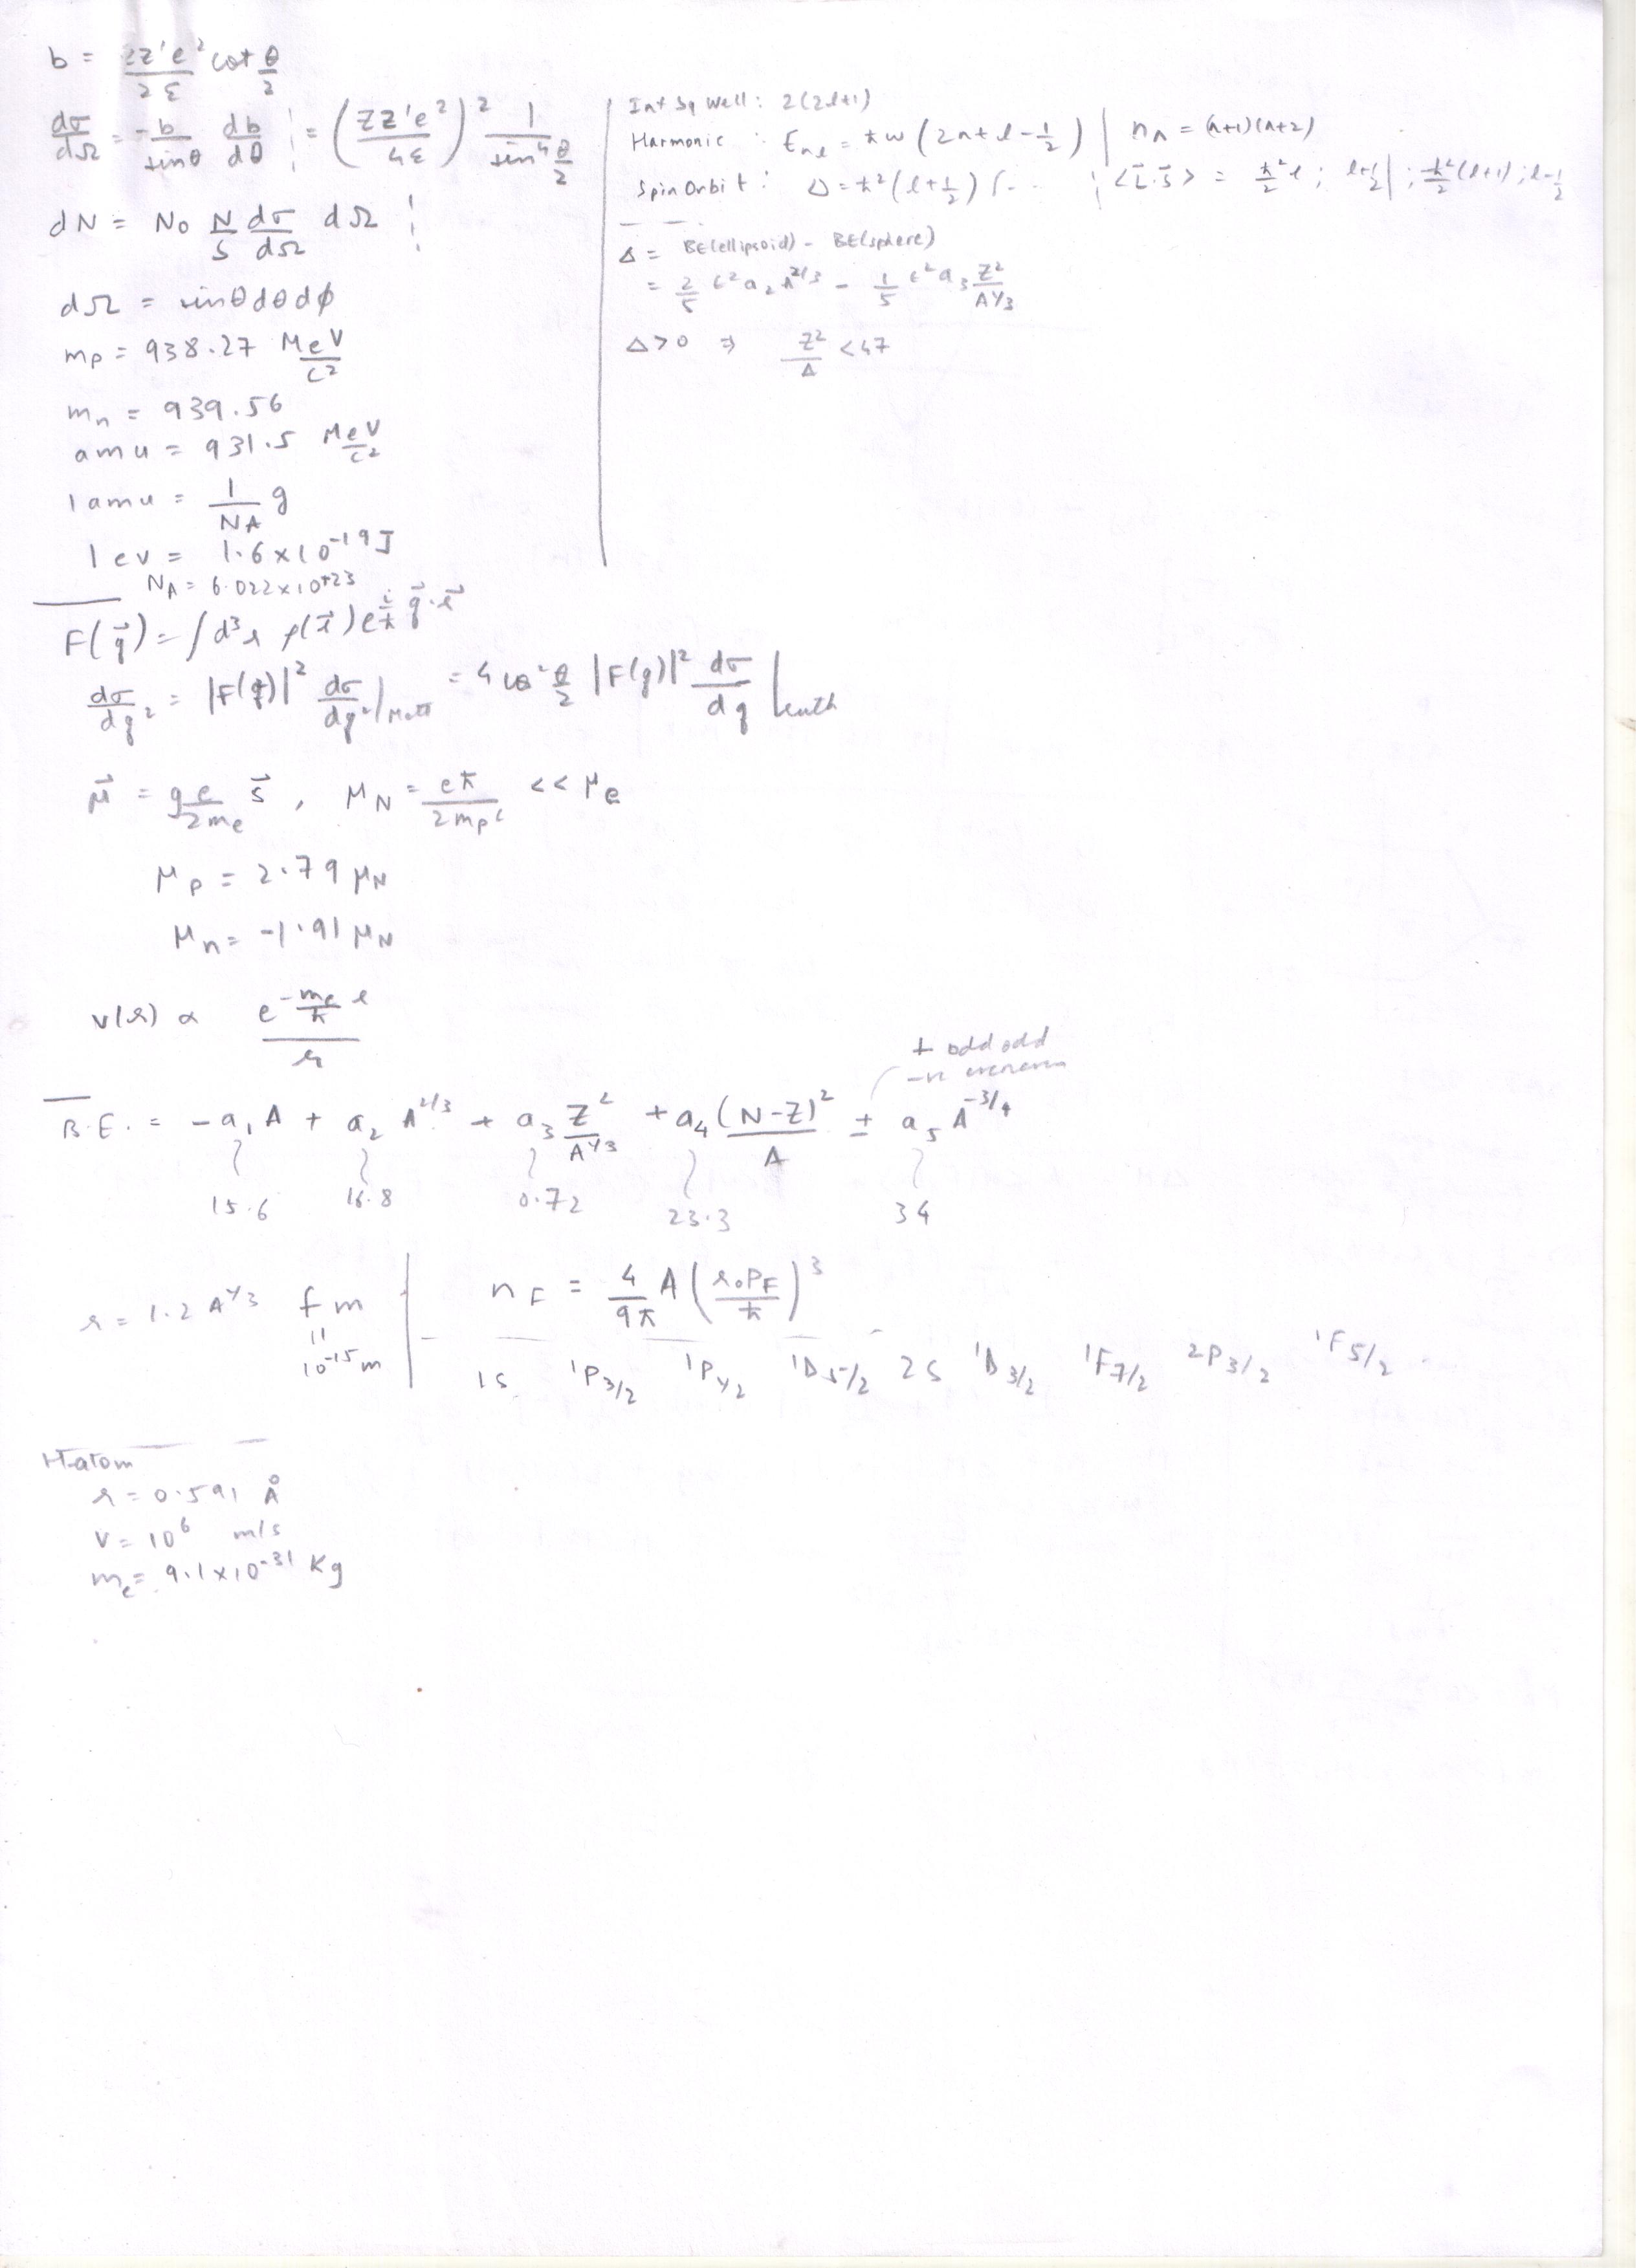 b = ZZ'e²/2ε cot θ/2
dσ/dΩ = -b/sinθ db/dθ ¦ = (ZZ'e²/4ε)² 1/sin⁴ θ/2
dN = No N/S dσ/dΩ dΩ
dΩ = sinθdθdϕ
mp = 938.27 MeV/c²
mn = 939.56
amu = 931.5 MeV/c²
1 amu = 1/NA g
1 ev = 1.6×10⁻¹⁹J
NA = 6.022×10⁺²³
Inf Sq Well : 2(2l+1)
Harmonic : Enl = ħw(2n+l-1/2) | nΛ = (Λ+1)(Λ+2)
Spin Orbit : Δ = ħ²(l+1/2) ∫... ; <L⃗.S⃗> = ħ²/2 l ; l+1/2 | ; -ħ²/2 (l+1) ; l-1/2
Δ = BE(ellipsoid) - BE(sphere)
= 2/5 ϵ² a₂ A^2/3 - 1/5 ϵ² a₃ Z²/A^1/3
Δ>0 ⇒ Z²/A <47
F(q⃗) = ∫d³r ρ(r⃗) e^(i/ħ q⃗.r⃗)
dσ/dq² = |F(q)|² dσ/dq²|Mott = 4 cos² θ/2 |F(q)|² dσ/dq |Ruth
μ⃗ = g e/2me S⃗ , μN = eħ/2mpc << μe
μp = 2.79 μN
μn = -1.91 μN
v(r) α e^(-mc/ħ r)/r
+ odd odd
-ve eveneven
B.E. = -a₁ A + a₂ A^2/3 + a₃ Z²/A^1/3 + a₄ (N-Z)²/A ± a₅ A^-3/4
15.6 16.8 0.72 23.3 34
r = 1.2 A^1/3 fm
10⁻¹⁵m
nF = 4/9π A (roPF/ħ)³
1S 1P3/2 1P1/2 1D5/2 2S 1D3/2 1F7/2 2P3/2 1F5/2
H-atom
r = 0.591 Å
v = 10⁶ m/s
me = 9.1×10⁻³¹ Kg